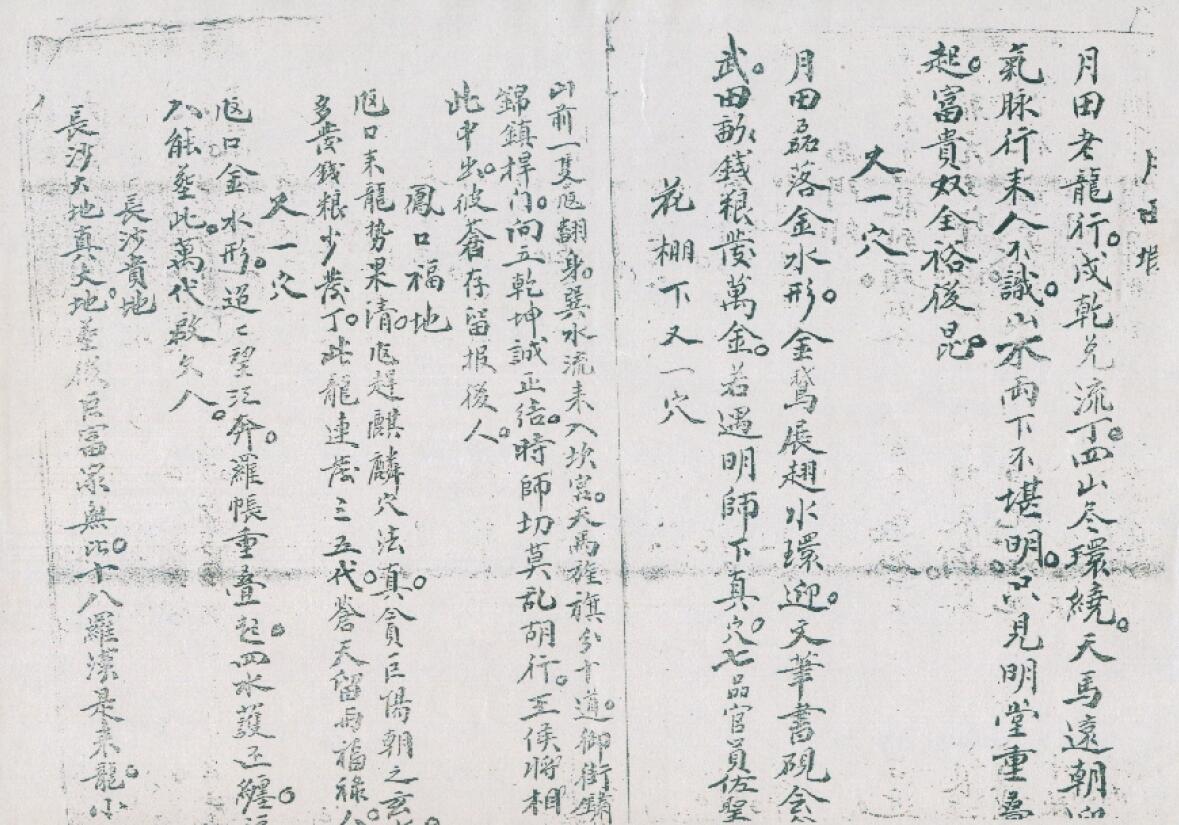 月田老龍行。戍乾兌流丁。四山尽環繞。天馬遠朝迎
氣脉行来人不識。山水両下不堪明。只見明堂重疊
起。富貴双全裕後昆。
又一穴。
月田磊落金水形。金鵞展翅水環迎。文筆書硯会
武。田畝錢粮發萬金。若遇明師下真穴。七品官員佐聖
花棚下又一穴
山前一隻鳳翻身。巽水流来入坎宮。天馬旌旗分十道。御街鎖
錦鎮捍门。向立乾坤誠正结。時師切莫乱胡行。王侯将相
此中出。彼蒼存留报後人。
鳳口福地
鳳口来龍势果清。鳳趕麒麟穴法真。貪巨陽朝之玄
多發錢粮少發丁。此龍連發三五代。蒼天留与福禄人
又一穴
鳳口金水形。迢〻望江奔。羅帳重疊起。四水護还纏
人能塟此。萬代啟文人。
長沙貴地
長沙大地真大地。塟後巨富家無比。十八羅漢是来龍。小